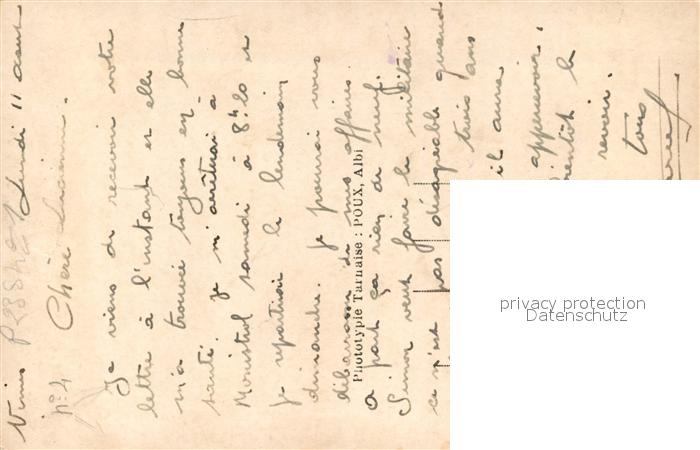 Lundi 11 août
n° 4
Chère Lucienne.
Je viens de recevoir votre
lettre à l'instant et elle
m'a trouvé toujours en bonne
santé. Je m'arrêterai à
Monistrol samedi à 8h10 et
je repartirai le lendemain
dimanche. Je pourrai vous
débarrasser de mes affaires.
A part ça rien de neuf.
Simon veut faire le militaire
ce n'est pas désagréable quand
trois ans
il aura
appercevoir.
bientôt le
revoir.
Tous
Phototypie Tarnaise : POUX, Albi
privacy protection
Datenschutz